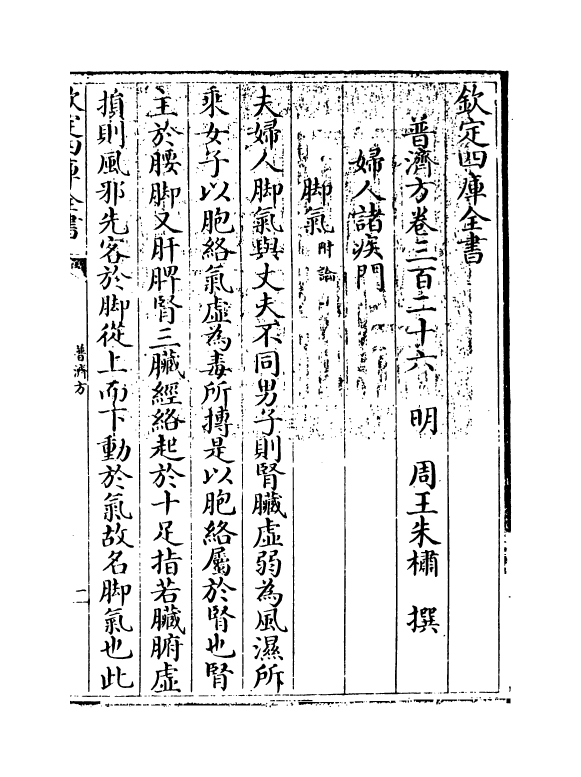 欽定四庫全書
普濟方卷三百二十六　明　周王朱橚　撰
婦人諸疾門
脚氣附論
夫婦人脚氣與丈夫不同男子則腎臟虛弱為風濕所
乘女子以胞絡氣虛為毒所搏是以胞絡屬於腎也腎
主於腰脚又肝脾腎三臟經絡起於十足指若臟腑虛
損則風邪先客於脚從上而下動於氣故名脚氣也此
欽定四庫全書
普濟方
二